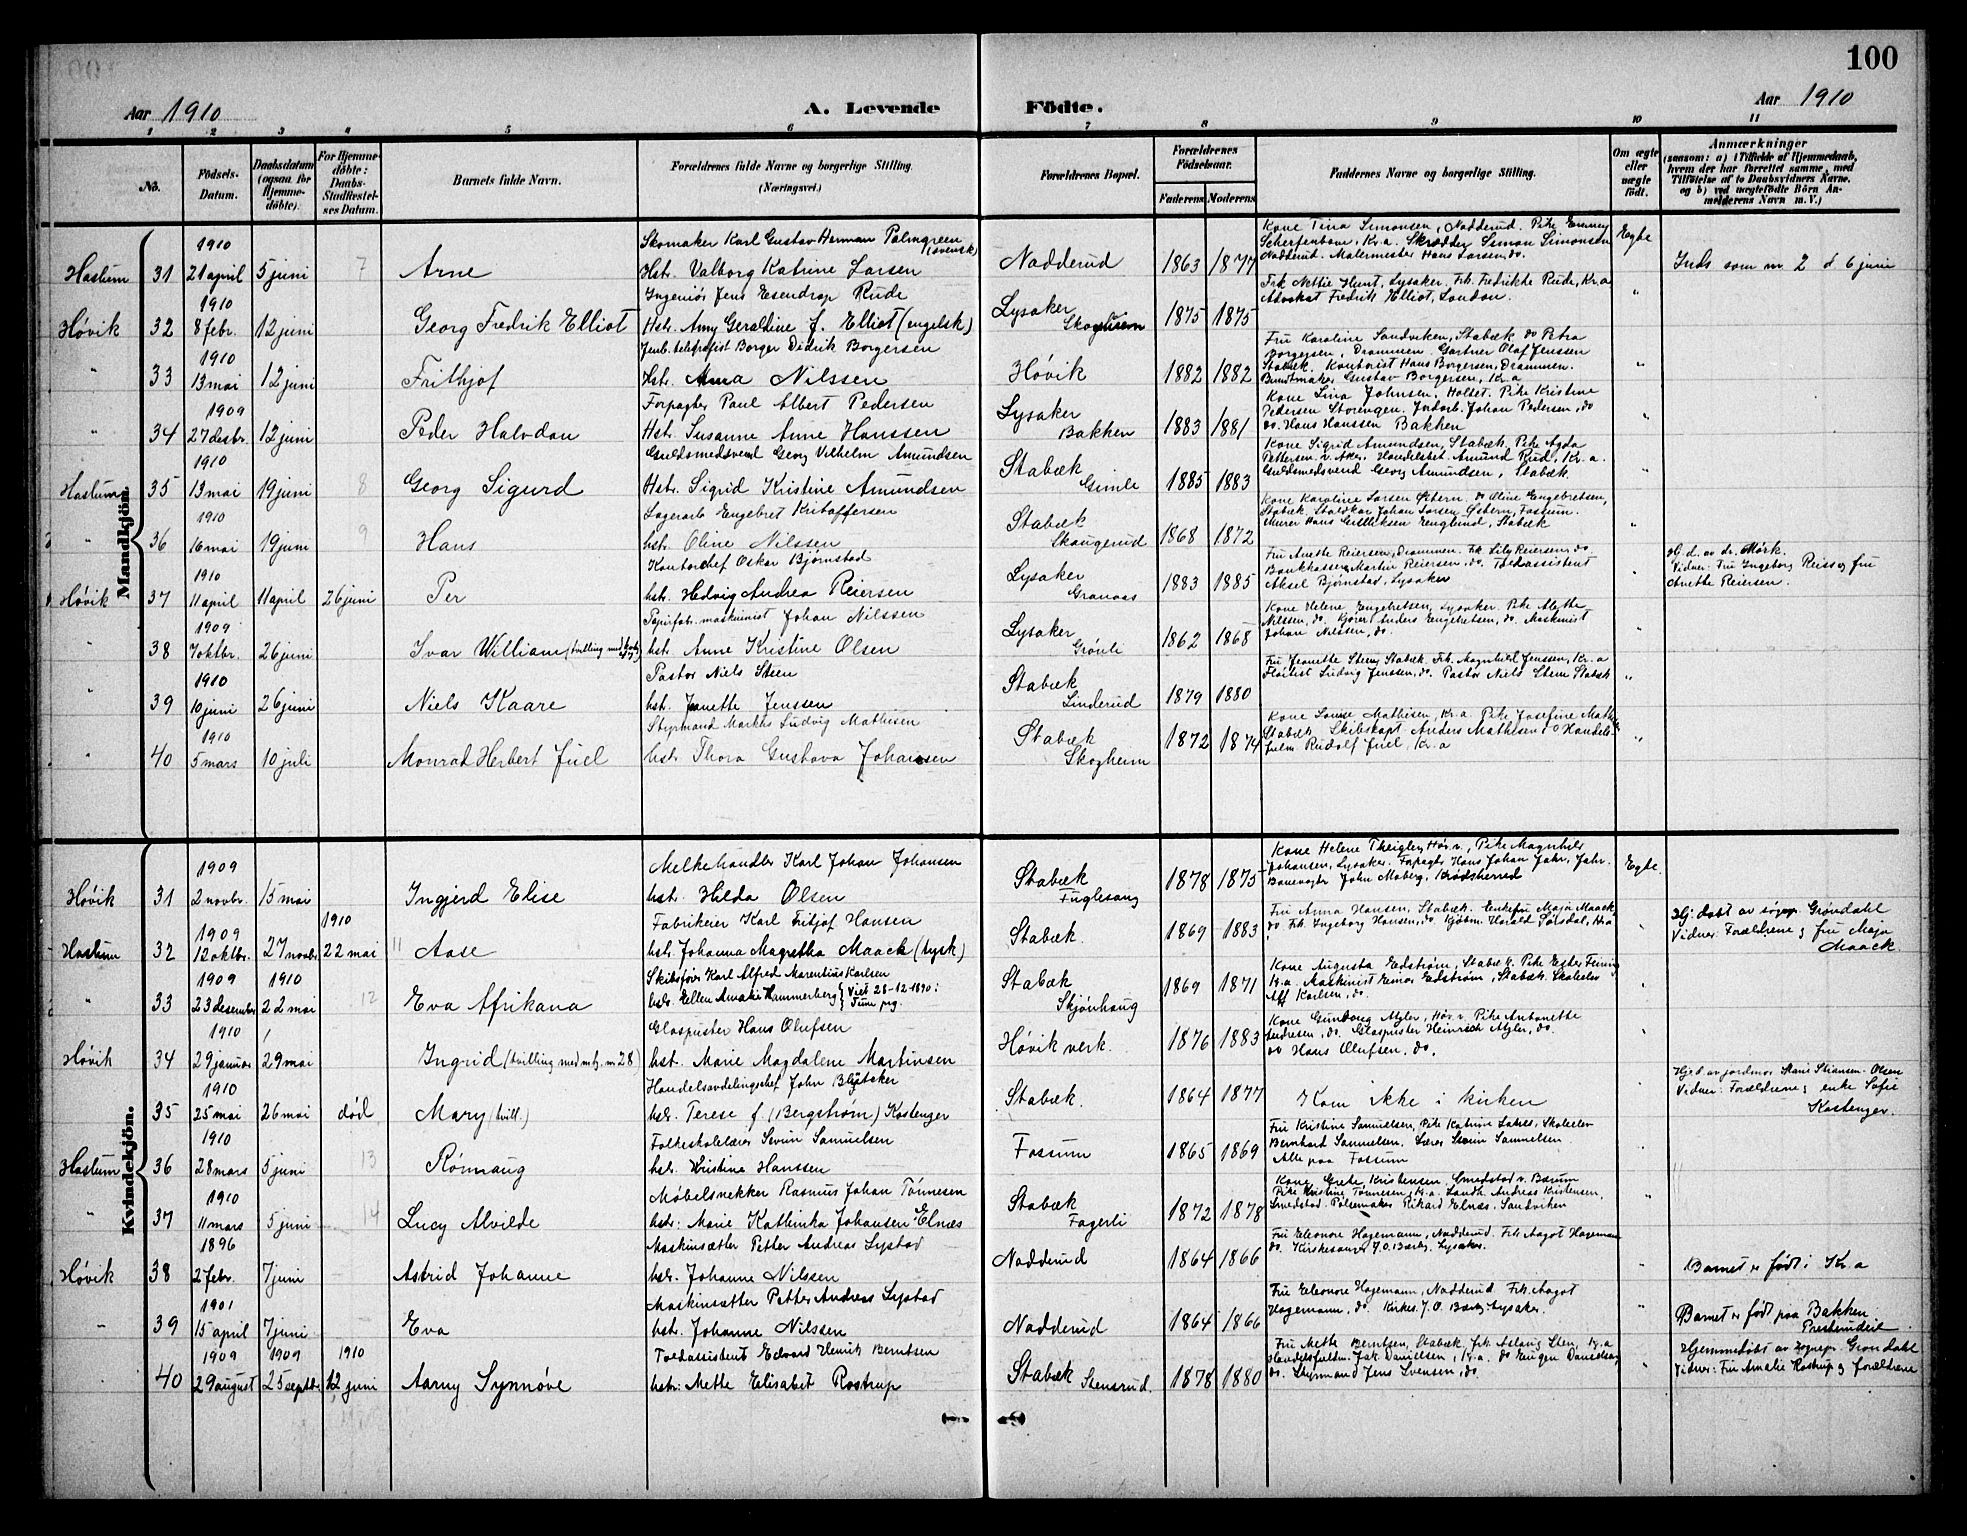 100
Aar 1910
A. Levende Födte.
Aar 1910
1 2 3 4 5 6 7 8 9 10 11
No.
Födsels-Datum.
Daabsdatum (ogsaa for Hjemme-døbte).
For Hjemme-døbte: Daabs-Stadfæstel-ses Datum.
Barnets fulde Navn.
Forældrenes fulde Navne og borgerlige Stilling. (Næringsvei.)
Forældrenes Bopæl.
Forældrenes Födselsaar.
Faderens Moderens
Faddernes Navne og borgerlige Stilling.
Om ægte eller uægte födt.
Anmærkninger
(saasom: a) i Tilfælde af Hjemmedaab, hvem der har forrettet samme, med Tilføielse af to Daabsvidners Navne. og b) ved uægtefödte Börn An-melderens Navn m. V.)
Mandkjön.
Haslum 31 1910 21 april 5 juni 7 Arne
Skomaker Karl Gustav Herman Palmgreen (svensk)
Hstr. Valborg Katrine Larsen
Nadderud 1863 1877
Kone Tina Simonsen, Nadderud. Pike Emmy
Kr.a. Skrædder Simon Simonsen
Nadderud. Malermester Hans Larsen, do.
Egte
Inds som nr 2 d 6 juni
Høvik 32 1910 8 febr. 12 juni Georg Fredrik Elliot
Ingeniør Jens Esendrop Rude
Hstr. Amy Geraldine f. Elliot (engelsk)
Lysaker Skogheim 1875 1875
Frk Nettie Hunt, Lysaker. Frk. Fredrikke Rude, Kr.a
Advokat Fredrik Elliot, London.
"
" 33 1910 13 mai 12 juni Frithjof
Jenb. telegrafist Borger Didrik Borgersen
Hstr. Anna Nilssen
Høvik 1882 1882
Fru Karoline Sandviken, Stabæk do Petra
Borgersen, Drammen Gartner Olaf Jenssen
Stabæk. Kontorist Hans Borgersen, Drammen.
Buntmaker Gustav Borgersen, Kr.a
"
" 34 1909 27 desbr. 12 juni Peder Halvdan
Forpagter Paul Albert Pedersen
Hstr. Susanne Anne Hanssen
Lysaker Bakken 1883 1881
Kone Lina Johnsen, Holset. Pike Kristine
Pedersen Storengen. Jordarb. Johan Pedersen, do
do. Hans Hanssen Bakken
Haslum 35 1910 13 mai 19 juni 8 Georg Sigurd
Guldsmedsvend Georg Vilhelm Amundsen
Hstr. Sigrid Kristine Amundsen
Stabæk Gimle 1885 1883
Kone Sigrid Amundsen, Stabæk. Pike Agda
Pettersen v. Aker. Handelsbet. Amund Rud, Kr. a.
Guldsmedsvend Georg Amundsen, Stabæk.
"
" 36 1910 16 mai 19 juni 9 Hans
Lagerarb Engebret Kristoffersen
hstr. Oline Nilssen
Stabæk Skaugerud 1868 1872
Kone Karoline Larsen Østern. do Oline Engebretsen,
Stabæk. Staldkar Johan Larsen Østern, Fossum.
Murer Hans Gulliksen Englund, Stabæk
"
Høvik 37 1910 11 april 11 april 26 juni Per
Kontorchef Oskar Bjørnstad
hstr. Hedvig Andrea Reiersen
Lysaker Granaas 1883 1885
Fru Anette Reiersen, Drammen. Frk Lily Reiersen, do
Bankkasserer Martin Reiersen, do. Toldassistent
Aksel Bjørnstad, Lysaker
"
Hj. d. av dr. Mørk.
Vidner: Fru Ingeborg Reiss og fru
Anette Reiersen.
" 38 1909 7 oktbr. 26 juni Ivar William (tvilling med
Papirfabr. maskinist Johan Nilssen
hstr. Anne Kristine Olsen
Lysaker Grønli 1862 1868
Kone Helene Engebretsen, Lysaker. Pike Alethe
Nilssen, do. Kjører Anders Engebretsen, do. Maskinist
Johan Nilssen, do.
"
" 39 1910 10 juni 26 juni Niels Kaare
Pastor Niels Steen
hst. Jeanette Jenssen
Stabæk Linderud 1879 1880
Fru Jeanette Steen, Stabæk. Frk. Magnhild Jenssen, Kr. a
Fløitist Ludvig Jenssen, do. Pastor Niels Steen Stabæk
"
" 40 1910 5 mars 10 juli Monrad Herbert Juel
Styrmand Markus Ludvig Mathisen
hstr Thora Gustava Johansen
Stabæk Skogheim 1872 1874
Kone Louise Mathisen, Kr. a. Pike Josefine Mathisen
Stabæk. Skibskapt. Anders Mathisen do Handels-
fulm. Rudolf Juel, Kr. a
"
Kvindekjön.
Høvik 31 1909 2 novbr. 15 mai Ingjerd Elise
Melkehandler Karl Johan Johansen
hst. Hilda Olsen
Stabæk Fuglesang 1878 1875
Kone Helene Theigler, Høv. v., Pike Magnhild
Johansen, Lysaker. Forpagter Hans Johan Jahr, Jahr.
Banevogter John Moberg. Krødsherred
Egte.
Haslum 32 1909 12 oktbr. 27 novbr 1910 22 mai 11 Aase
Fabrikeier Karl Fritjof Hansen
hst. Johanna Magretha Maack (tysk)
Stabæk. 1869 1883
Fru Anna Hansen, Stabæk. Enkefru Maja Maack,
do Frk. Ingeborg Hansen, do Kjøbm. Harald Sørsdal,
Hj: døbt av sogepr. Grøndahl
Vidner: Forældrene og fru Maja
Maack.
" 33 1909 23 desember 1910 22 mai 12 Eva Afrikana
Skibsfør. Karl Alfred Marentius Karlsen
hst. Ellen Amalie Hammerberg } Viet 28-12 1890 i Tune prg.
Stabæk Skjønhaug 1869 1871
Kone Augusta Edstrøm, Stabæk. Pike Ester
Kr.a. Maskinist Einar Edstrøm, Stabæk. Skoleelev
Alf Karlsen, do.
Høvik 34 1910 29 januar 29 mai Ingrid (tvilling med mtj. nr 28
Glaspuster Hans Olufsen
hst. Marie Magdalene Martinsen
Høvik verk. 1876 1883
Kone Gundborg Atgler, Høv. v. Pike Antonette
Andresen, do. Glaspuster Heinrich Atgler, do.
do Hans Olufsen, do.
35 1910 25 mai 26 mai død Mary (tvill.)
Handelsavdelingschef John Blytsker
hstr. Terese f. (Bergstrøm) Kostenger
Stabæk. 1864 1877
Kom ikke i kirken
Hjed. av jordmor Stine Stiansen-Olsen
Vidner: Forældrene og enke Sofie
Kostenger.
Haslum 36 1910 28 mars 5 juni 13 Rønnaug
Folkeskolelærer Severin Samuelsen
hst. Kristine Hanssen
Fossum 1865 1869
Fru Kristine Samuelsen, Pike Katrine Skoleelev
Bernhard Samuelsen, Lærer Severin Samuelsen.
Alle paa Fossum
"
" 37 1910 11 mars 5 juni 14 Lucy Alvilde
Møbelsnekker Rasmus Johan Tønnesen
hstr: Marie Kathinka Johansen Elnæs
Stabæk Fagerli 1872 1878
Kone Grete Kristensen, Smedstad v. Bærum
Pike Kristine Tønnesen, Kr.a. Landh. Andreas Kristensen,
Smedstad. Pølsemaker Rikard Elnæs. Sandviken
"
Høvik 38 1896 2 febr. 7 juni Astrid Johanne
Maskinsætter Petter Andreas Lystad
hstr. Johanne Nilssen
Nadderud 1864 1866
Fru Eleonore Hagemann, Nadderud. Frk. Aagot Hagemann
do. Kirkesanger J. O. Berby, Lysaker.
"
Barnet er født i Kr. a
" 39 1901 15 april 7 juni Eva
Maskinsætter Petter Andreas Lystad
hst. Johanne Nilssen
Nadderud 1864 1866
Fru Eleonore Hagemann, Nadderud Frk. Aagot
Hagemann, do. Kirkes. J. O. Berby, Lysaker.
"
Barnet er født paa Bakken
40 1909 29 august 1909 25 septbr 1910 12 juni Aarny Synnøve
Toldassistent Edvard Henrik Berntsen
hstr: Mette Elisabet Rostrup
Stabæk Stensrud. 1878 1880
Fru Mette Berntsen, Stabæk, Frk Aslaug Steen, Kr. a
Handelsfuldm. Jak. Danielsen, Kr. a. do Eugen Danielsen
do. Styrmand Jens Svensen, do.
"
Hjemmedøbt av sognepr. Grøndahl
Vidner: Fru Amalie Rostrup og forældrene